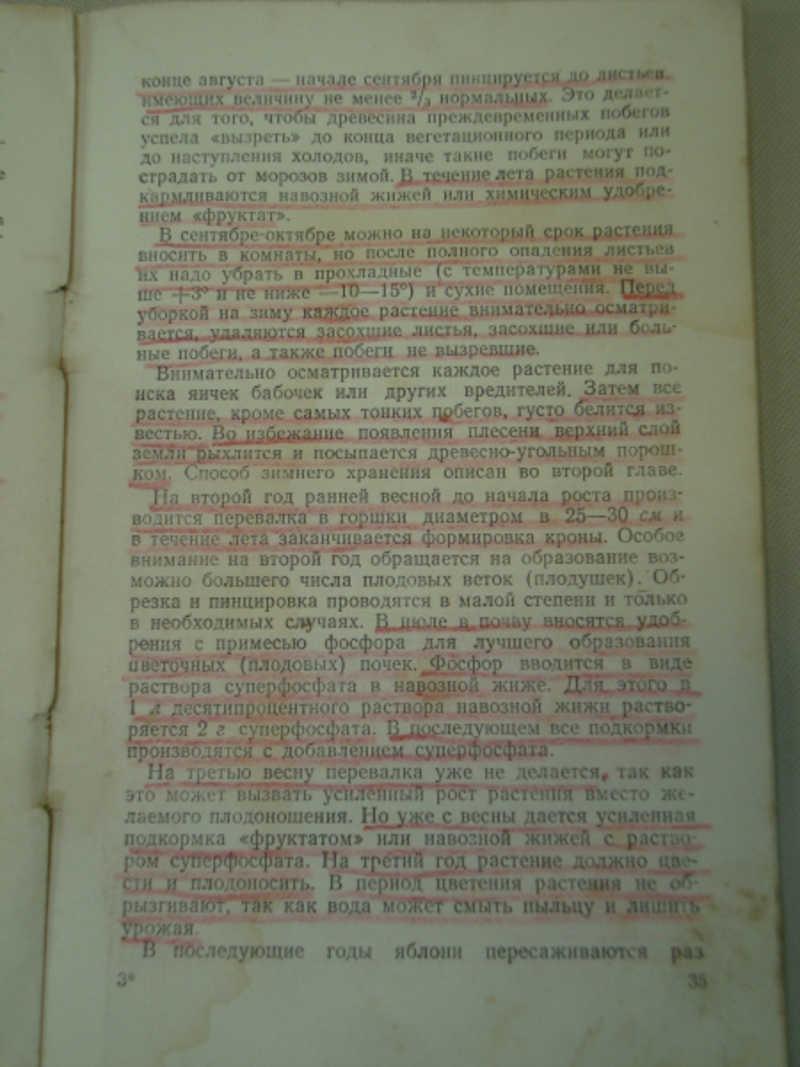 конце августа — начале сентября пинцируется до листьев,
имеющих величину не менее ²/₃ нормальных. Это делает-
ся для того, чтобы древесина преждевременных побегов
успела «вызреть» до конца вегетационного периода или
до наступления холодов, иначе такие побеги могут по-
страдать от морозов зимой. В течение лета растения под-
кармливаются навозной жижей или химическим удобре-
нием «фруктат».
В сентябре-октябре можно на некоторый срок растения
вносить в комнаты, но после полного опадения листьев
их надо убрать в прохладные (с температурами не вы-
ше +3° и не ниже —10—15°) и сухие помещения. Перед
уборкой на зиму каждое растение внимательно осматри-
вается, удаляются засохшие листья, засохшие или боль-
ные побеги, а также побеги не вызревшие.
Внимательно осматривается каждое растение для по-
иска яичек бабочек или других вредителей. Затем все
растение, кроме самых тонких побегов, густо белится из-
вестью. Во избежание появления плесени верхний слой
земли рыхлится и посыпается древесно-угольным порош-
ком. Способ зимнего хранения описан во второй главе.
На второй год ранней весной до начала роста произ-
водится перевалка в горшки диаметром в 25—30 см и
в течение лета заканчивается формировка кроны. Особое
внимание на второй год обращается на образование воз-
можно большего числа плодовых веток (плодушек). Об-
резка и пинцировка проводятся в малой степени и только
в необходимых случаях. В июле в почву вносятся удоб-
рения с примесью фосфора для лучшего образования
цветочных (плодовых) почек. Фосфор вводится в виде
раствора суперфосфата в навозной жиже. Для этого в
1 л десятипроцентного раствора навозной жижи раство-
ряется 2 г суперфосфата. В последующем все подкормки
производятся с добавлением суперфосфата.
На третью весну перевалка уже не делается, так как
это может вызвать усиленный рост растения вместо же-
лаемого плодоношения. Но уже с весны дается усиленная
подкормка «фруктатом» или навозной жижей с раство-
ром суперфосфата. На третий год растение должно цве-
сти и плодоносить. В период цветения растения не об-
рызгивают, так как вода может смыть пыльцу и лишить
урожая.
В последующие годы яблони пересаживаются раз
3* 35